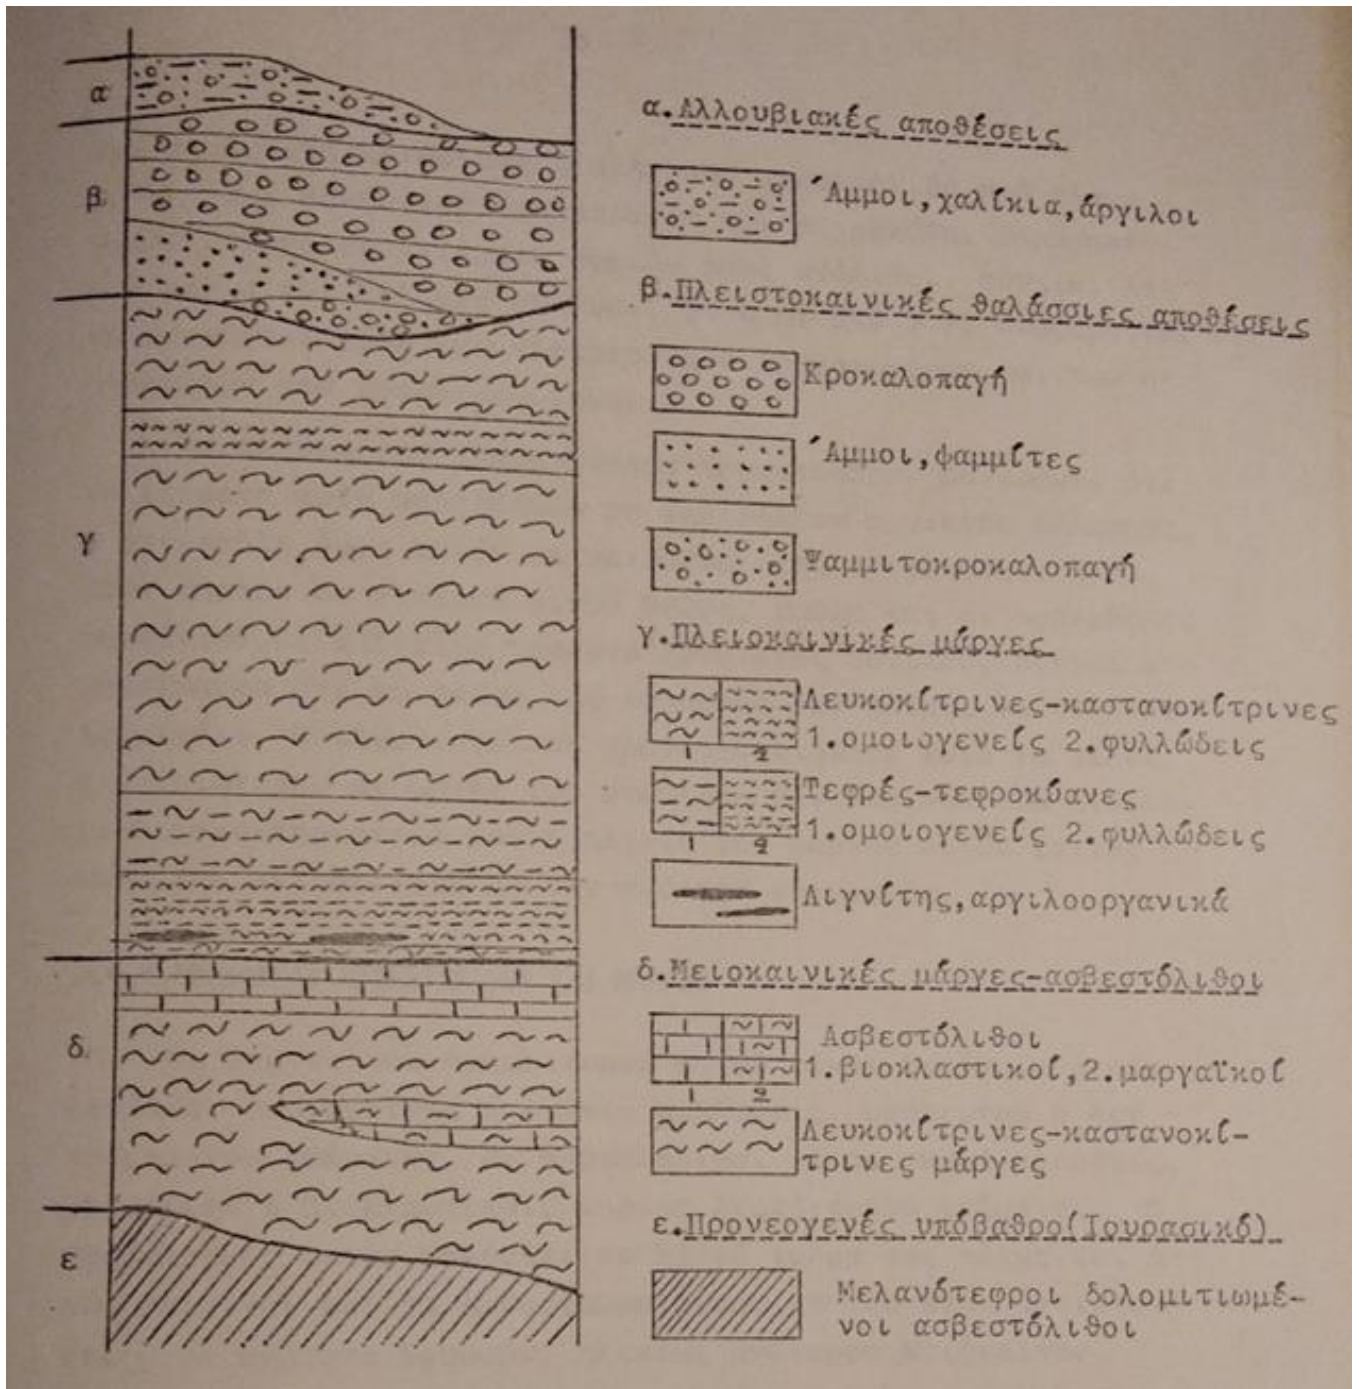 α
β
γ
δ
ε
α.Αλλουβιακές αποθέσεις
Άμμοι,χαλίκια,άργιλοι
β.Πλειστοκαινικές θαλάσσιες αποθέσεις
Κροκαλοπαγή
Άμμοι,ψαμμίτες
Ψαμμιτοκροκαλοπαγή
γ.Πλειοκαινικές μάργες
Λευκοκίτρινες-καστανοκίτρινες
1.ομοιογενείς 2.φυλλώδεις
1 2
Τεφρές-τεφροκύανες
1.ομοιογενείς 2.φυλλώδεις
1 2
Λιγνίτης,αργιλοοργανικά
δ.Μειοκαινικές μάργες-ασβεστόλιθοι
Ασβεστόλιθοι
1.βιοκλαστικοί,2.μαργαϊκοί
1 2
Λευκοκίτρινες-καστανοκί-
τρινες μάργες
ε.Προνεογενές υπόβαθρο(Ιουρασικό)
Μελανότεφροι δολομιτιωμέ-
νοι ασβεστόλιθοι